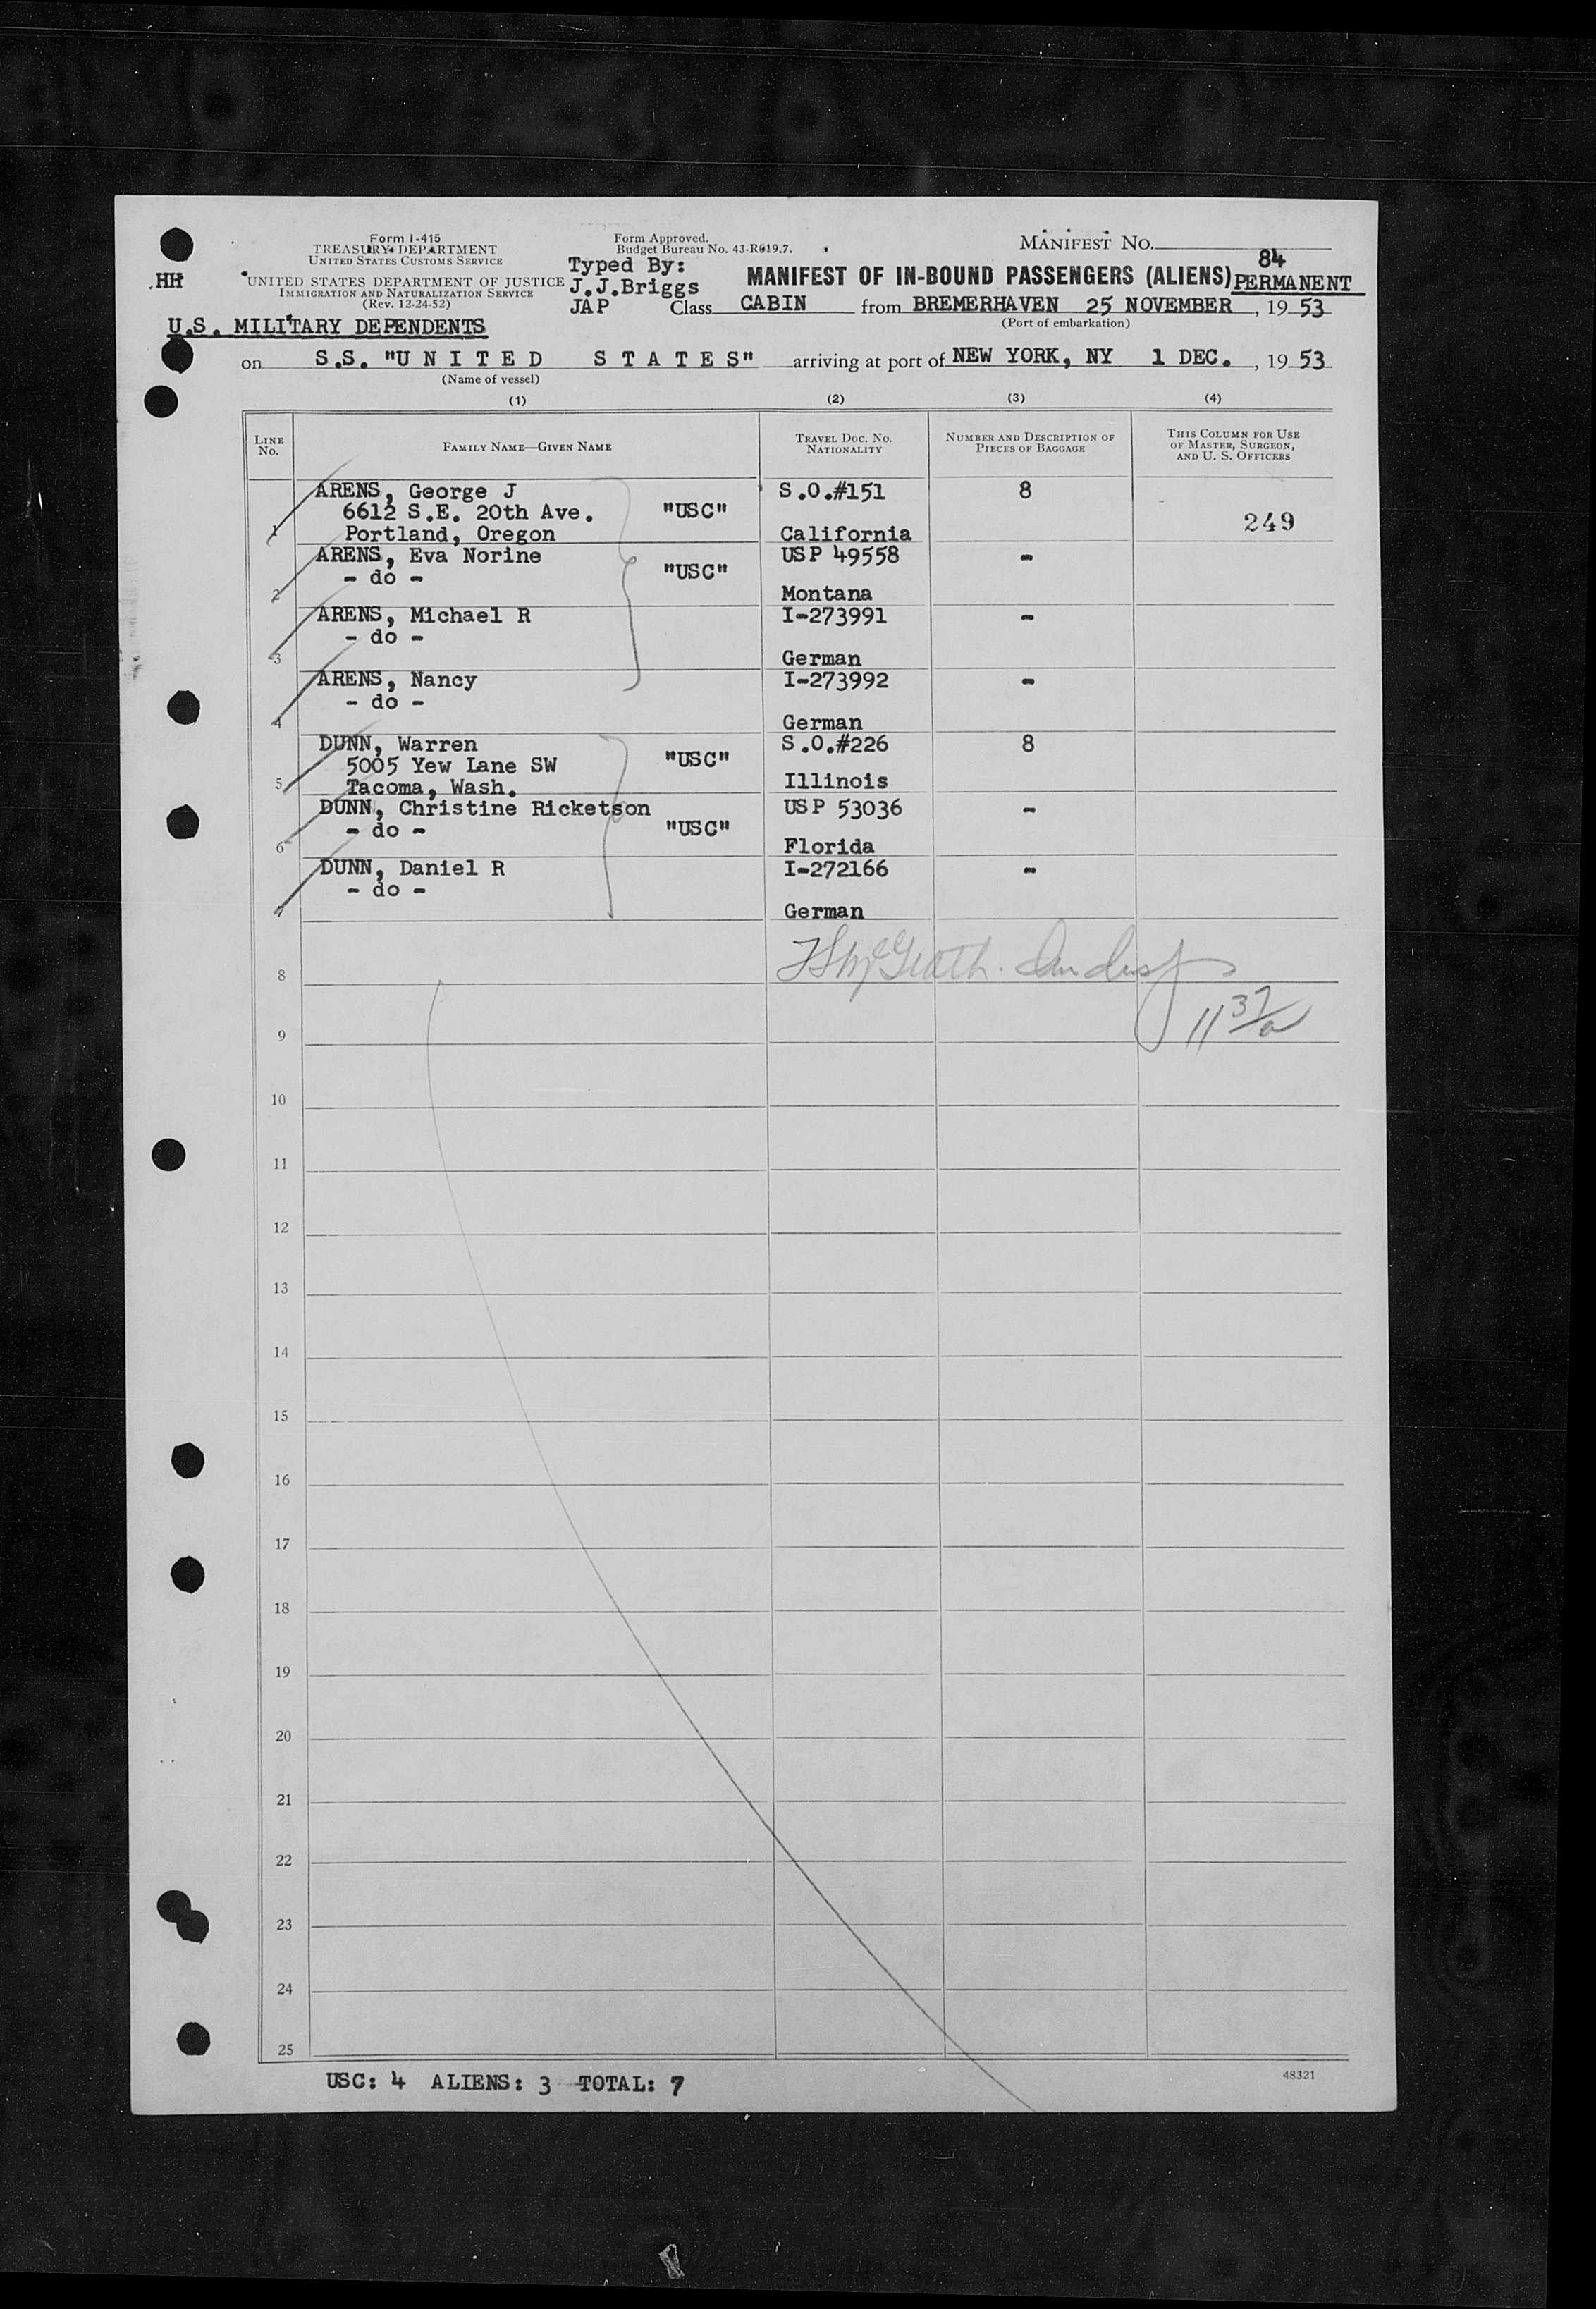 Form I-415
TREASURY DEPARTMENT
UNITED STATES CUSTOMS SERVICE
Form Approved.
Budget Bureau No. 43-R019.7.
MANIFEST No.
84
HH
UNITED STATES DEPARTMENT OF JUSTICE
IMMIGRATION AND NATURALIZATION SERVICE
(Rev. 12-24-52)
Typed By:
J.J.Briggs
JAP
MANIFEST OF IN-BOUND PASSENGERS (ALIENS) PERMANENT
Class CABIN from BREMERHAVEN 25 NOVEMBER, 19 53
(Port of embarkation)
U.S. MILITARY DEPENDENTS
on S.S. "U N I T E D S T A T E S" arriving at port of NEW YORK, NY 1 DEC., 19 53
(Name of vessel)
(1) (2) (3) (4)
LINE No. FAMILY NAME—GIVEN NAME TRAVEL DOC. NO. NATIONALITY NUMBER AND DESCRIPTION OF PIECES OF BAGGAGE THIS COLUMN FOR USE OF MASTER, SURGEON, AND U. S. OFFICERS
ARENS, George J S.O.#151 8
6612 S.E. 20th Ave. "USC" 249
1 Portland, Oregon California
ARENS, Eva Norine USP 49558 -
- do - "USC"
2 Montana
ARENS, Michael R I-273991 -
- do -
3 German
ARENS, Nancy I-273992 -
- do -
4 German
DUNN, Warren S.O.#226 8
5005 Yew Lane SW "USC"
5 Tacoma, Wash. Illinois
DUNN, Christine Ricketson USP 53036 -
- do - "USC"
6 Florida
DUNN, Daniel R I-272166 -
- do -
7 German
McGrath
8
11 37/a
9
10
11
12
13
14
15
16
17
18
19
20
21
22
23
24
25
USC: 4 ALIENS: 3 TOTAL: 7
48321